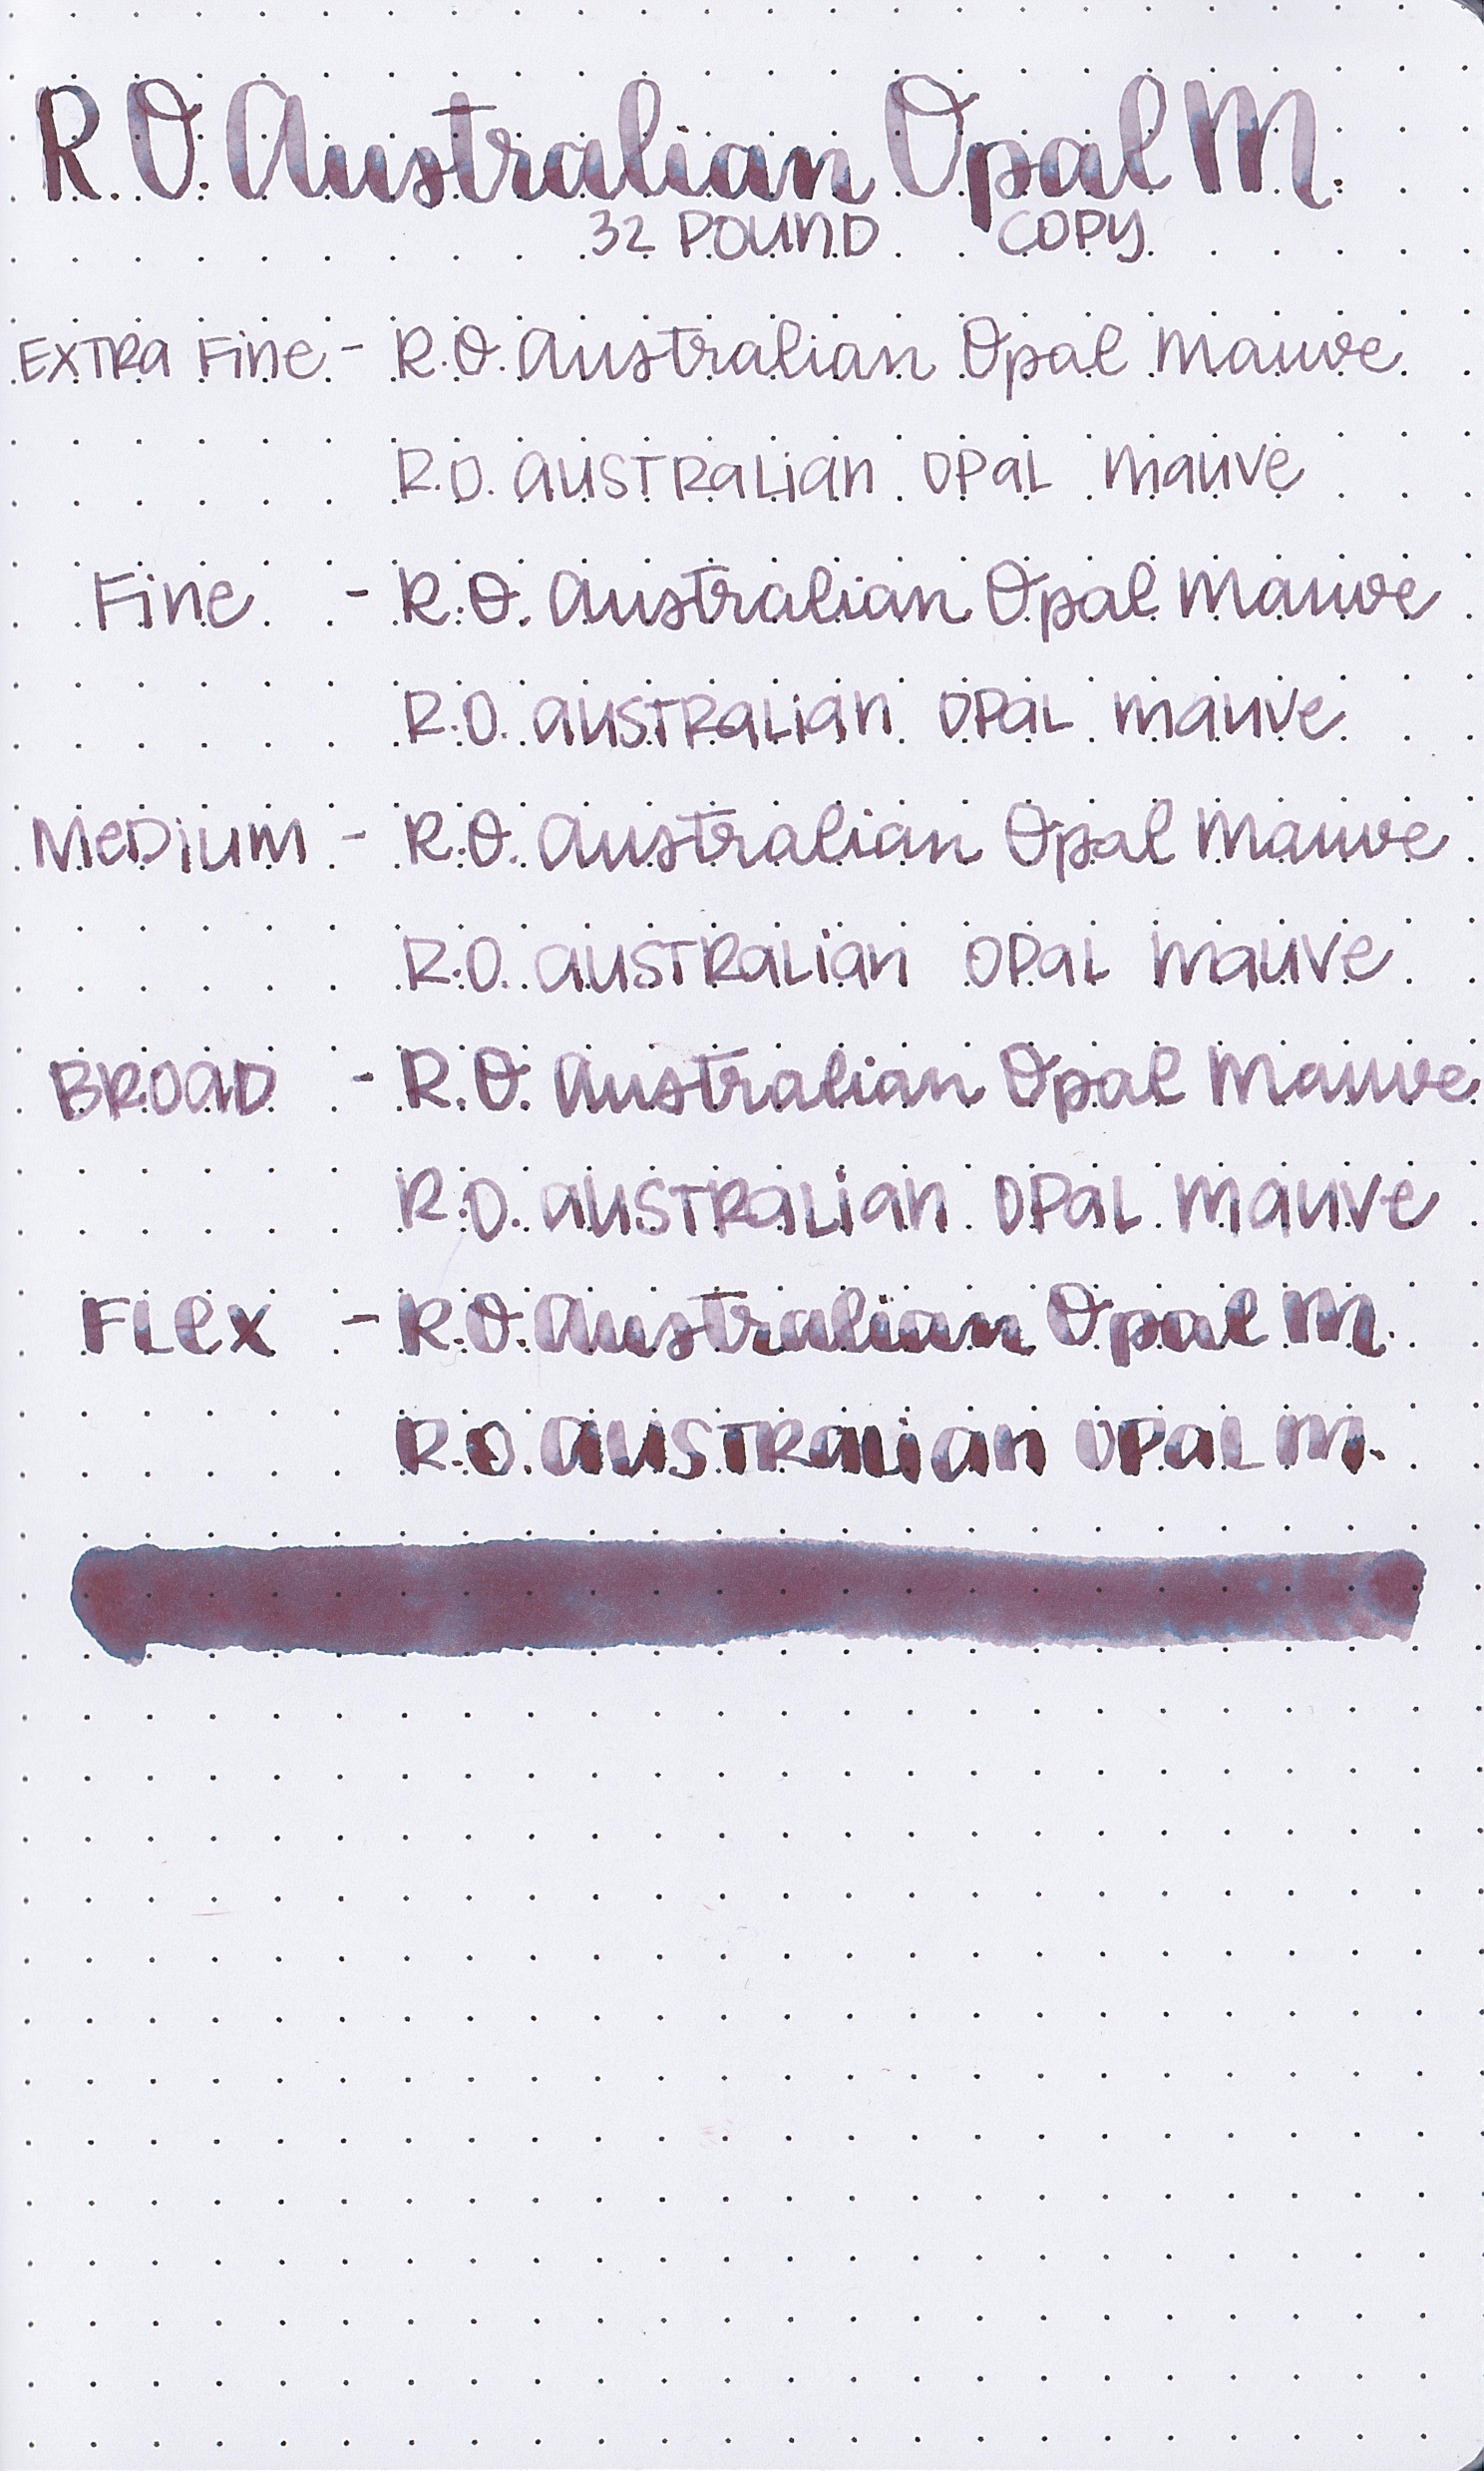 R.O. Australian Opal M.
32 POUND COPY
EXTRA Fine - R.O. Australian Opal Mauve
R.O. AUSTRALian OPAL Mauve
Fine - R.O. Australian Opal Mauve
R.O. AUSTRALian OPAL Mauve
MeDium - R.O. Australian Opal Mauve
R.O. AUSTRALian OPAL Mauve
BROAD - R.O. Australian Opal Mauve
R.O. AUSTRALian OPAL Mauve
FLex - R.O. Australian Opal M.
R.O. AUSTRALian OPAL M.